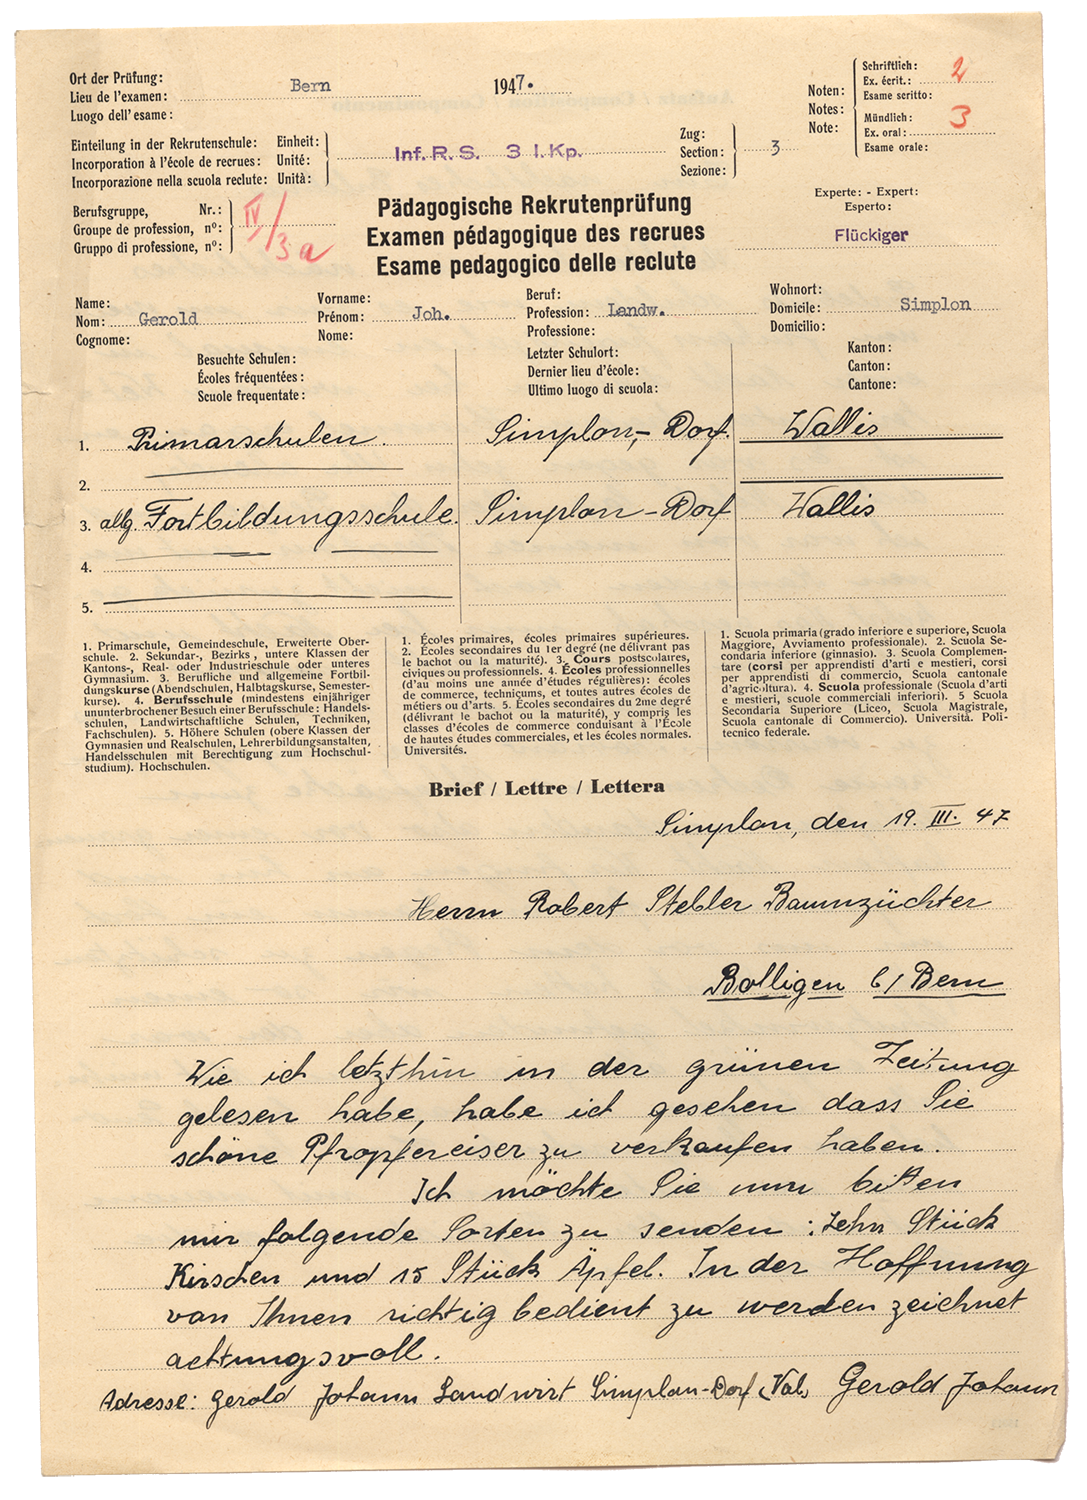 Ort der Prüfung:
Lieu de l'examen: Bern 1947.
Luogo dell'esame:
Noten: Schriftlich:
Notes: Ex. écrit.: 2
Note: Esame scritto:
Mündlich:
Ex. oral: 3
Esame orale:
Einteilung in der Rekrutenschule: Einheit:
Incorporation à l'école de recrues: Unité: Inf. R. S. 3 I. Kp.
Incorporazione nella scuola reclute: Unità:
Zug:
Section: 3
Sezione:
Berufsgruppe, Nr.:
Groupe de profession, nº: IV/3a
Gruppo di professione, nº:
Pädagogische Rekrutenprüfung
Examen pédagogique des recrues
Esame pedagogico delle reclute
Experte: - Expert:
Esperto:
Flückiger
Name: Vorname: Beruf: Wohnort:
Nom: Gerold Prénom: Joh. Profession: Landw. Domicile: Simplon
Cognome: Nome: Professione: Domicilio:
Besuchte Schulen: Letzter Schulort: Kanton:
Écoles fréquentées: Dernier lieu d'école: Canton:
Scuole frequentate: Ultimo luogo di scuola: Cantone:
1. Primarschulen. Simplon,- Dorf. Wallis
2.
3. allg. Fortbildungsschule. Simplon-Dorf Wallis
4.
5.
1. Primarschule, Gemeindeschule, Erweiterte Ober-
schule. 2. Sekundar-, Bezirks, untere Klassen der
Kantons-, Real- oder Industrieschule oder unteres
Gymnasium. 3. Berufliche und allgemeine Fortbil-
dungskurse (Abendschulen, Halbtagskurse, Semester-
kurse). 4. Berufsschule (mindestens einjähriger
ununterbrochener Besuch einer Berufsschule: Handels-
schulen, Landwirtschaftliche Schulen, Techniken,
Fachschulen). 5. Höhere Schulen (obere Klassen der
Gymnasien und Realschulen, Lehrerbildungsanstalten,
Handelsschulen mit Berechtigung zum Hochschul-
studium). Hochschulen.
1. Écoles primaires, écoles primaires supérieures.
2. Écoles secondaires du 1er degré (ne délivrant pas
le bachot ou la maturité). 3. Cours postscolaires,
civiques ou professionnels. 4. Écoles professionnelles
(d'au moins une année d'études régulières): écoles
de commerce, technicums, et toutes autres écoles de
métiers ou d'arts. 5. Écoles secondaires du 2me degré
(délivrant le bachot ou la maturité), y compris les
classes d'écoles de commerce conduisant à l'École
de hautes études commerciales, et les écoles normales.
Universités.
1. Scuola primaria (grado inferiore e superiore, Scuola
Maggiore, Avviamento professionale). 2. Scuola Se-
condaria inferiore (ginnasio). 3. Scuola Complemen-
tare (corsi per apprendisti d'arti e mestieri, corsi
per apprendisti di commercio, Scuola cantonale
d'agricoltura). 4. Scuola professionale (Scuola d'arti
e mestieri, scuole commerciali inferiori). 5 Scuola
Secondaria Superiore (Liceo, Scuola Magistrale,
Scuola cantonale di Commercio). Università. Poli-
tecnico federale.
Brief / Lettre / Lettera
Simplon, den 19. III. 47
Herrn Robert Stebler Baumzüchter
Bolligen b/ Bern
Wie ich letzthin in der grünen Zeitung
gelesen habe, habe ich gesehen dass Sie
schöne Pfropfereiser zu verkaufen haben.
Ich möchte Sie nun bitten
mir folgende Sorten zu senden: Zehn Stück
Kirschen und 15 Stück Äpfel. In der Hoffnung
von Ihnen richtig bedient zu werden zeichnet
achtungsvoll.
Adresse: Gerold Johann Landwirt Simplon-Dorf (Val) Gerold Johann